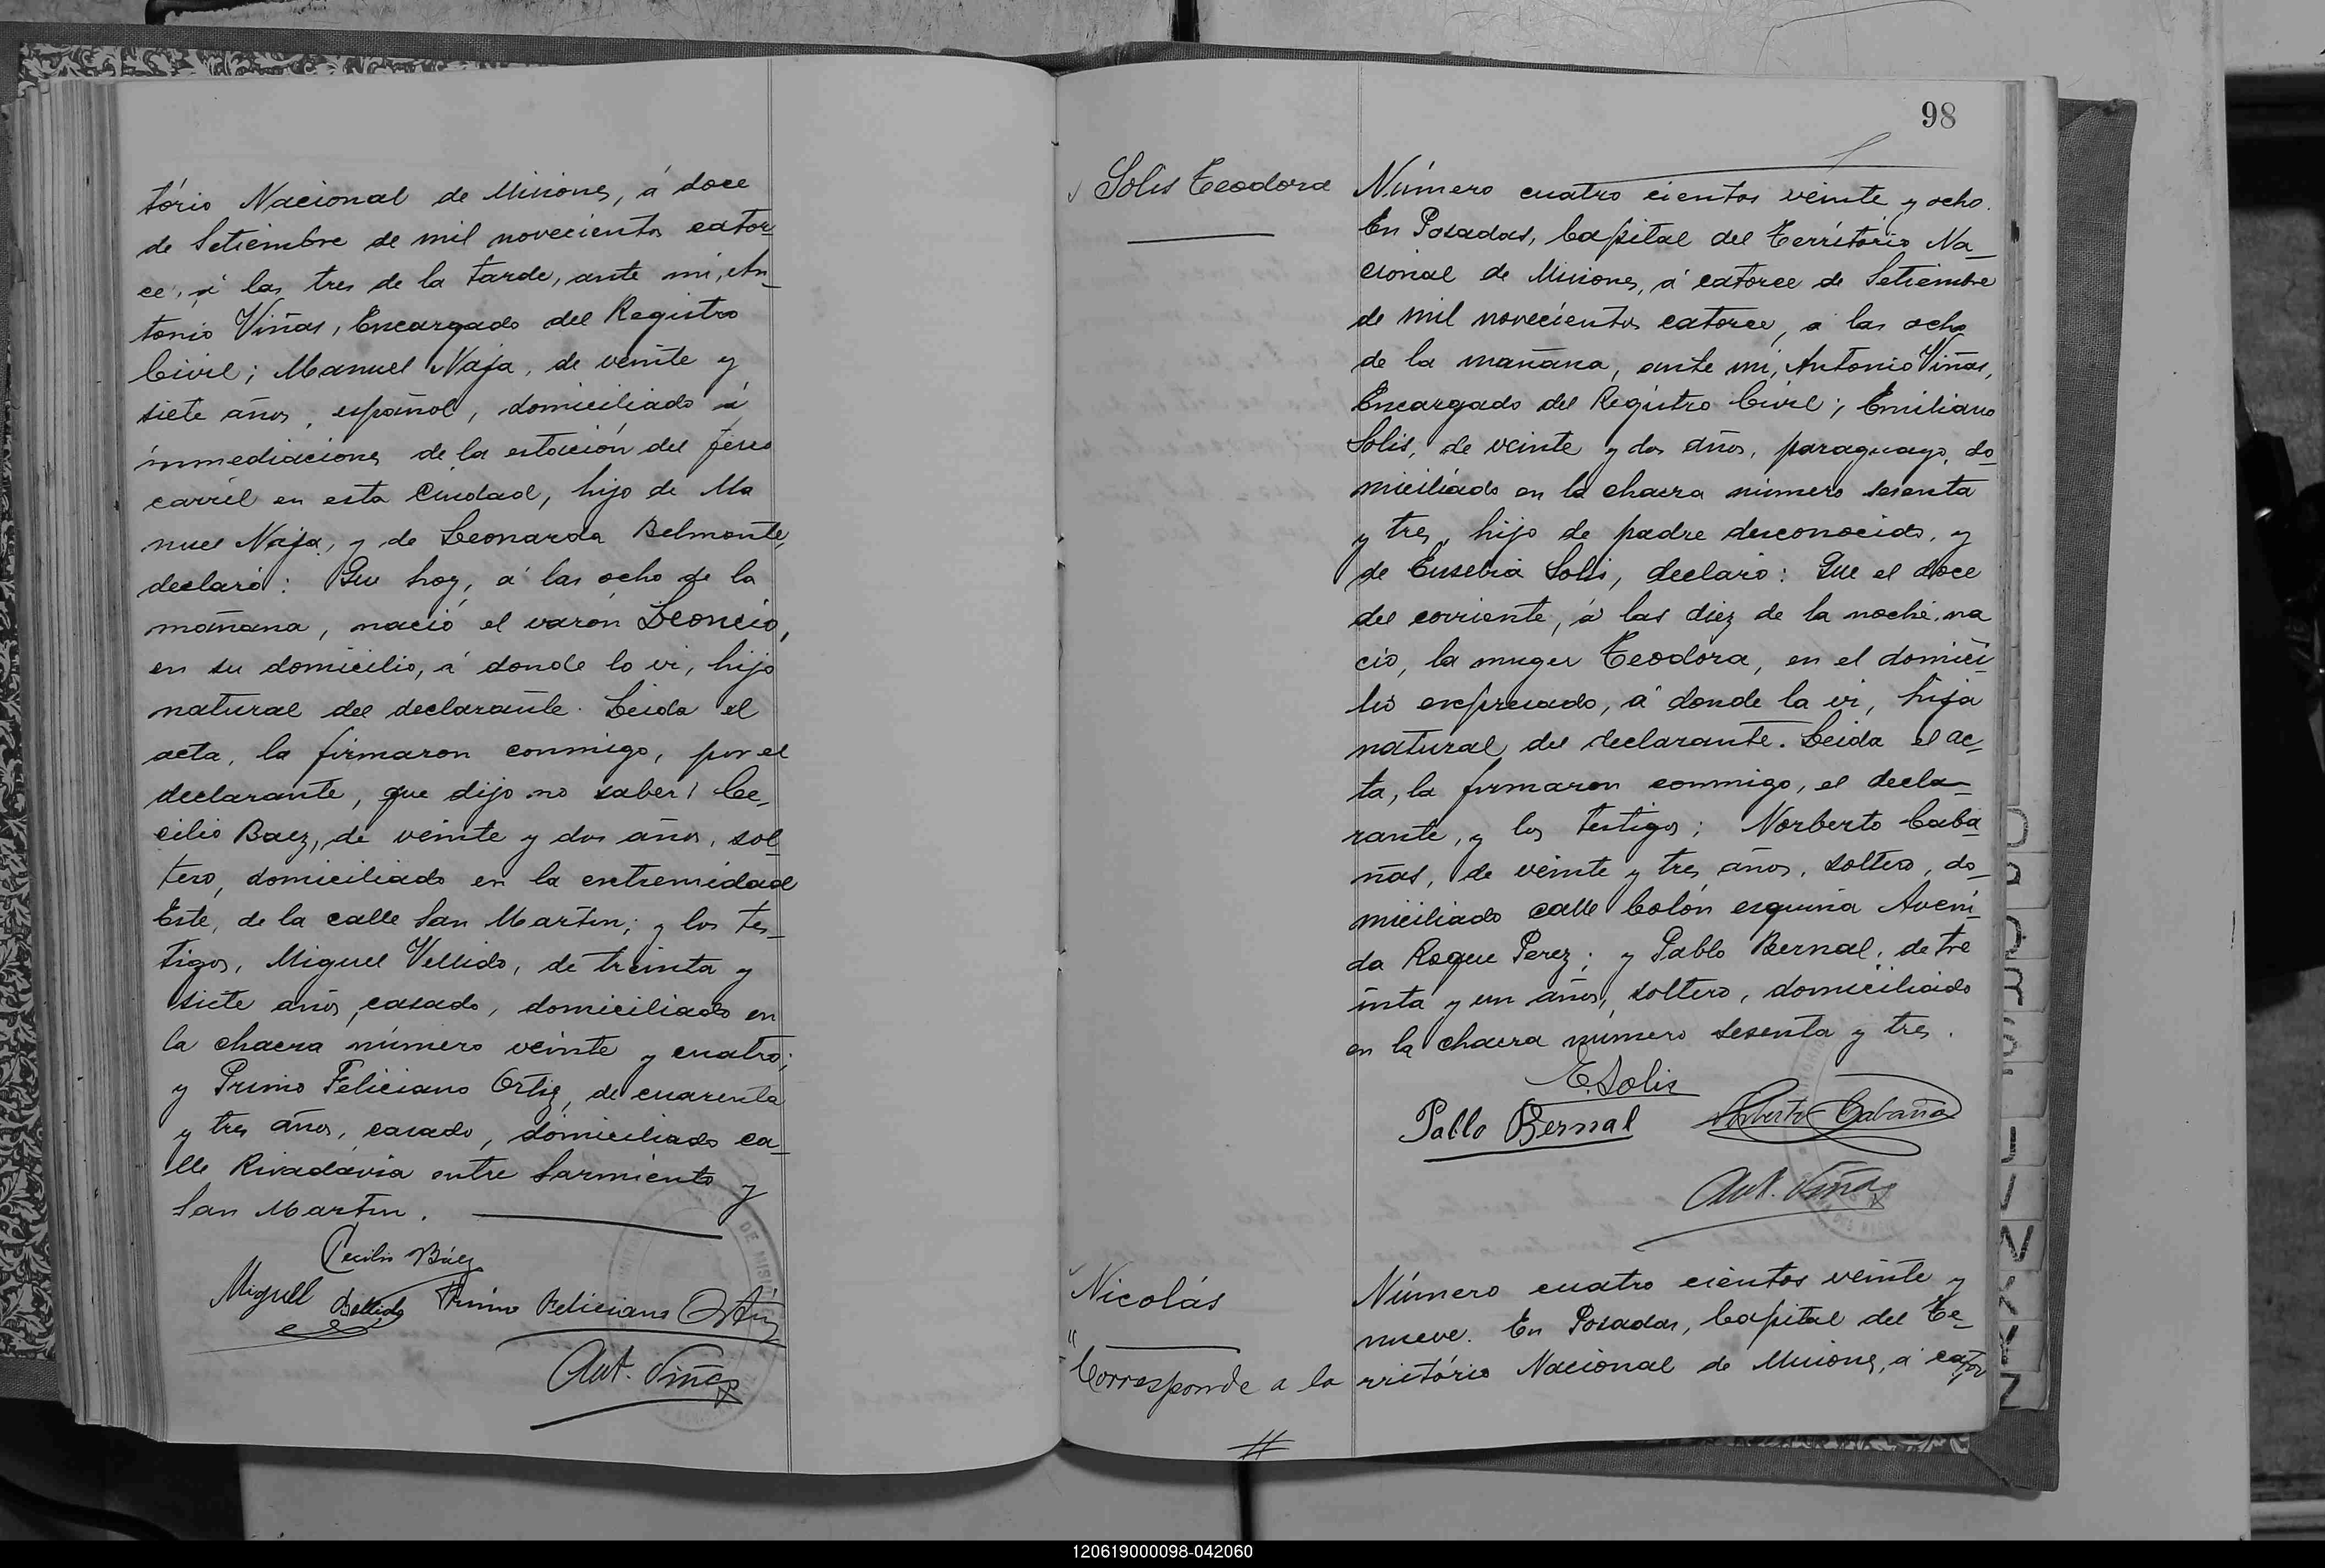 tório Nacional de Misiones, á doce
de Setiembre de mil novecientos cator
ce, á las tres de la tarde, ante mi, An_
tonio Viñas, Encargado del Registro
Civil; Manuel Naja, de veinte y
siete años, español, domiciliado á
inmediaciones de la estación del ferro
carril en esta Ciudad, hijo de Ma
nuel Naja, y de Leonarda Belmonte,
declaró: Que hoy, á las ocho de la
mañana, nació el varón Leoncio,
en su domicilio, á donde lo vi, hijo
natural del declarante. Leida el
acta, la firmaron conmigo, por el
declarante, que dijo no saber, Ce_
cilio Baez, de veinte y dos años, sol_
tero, domiciliado en la extremidad
Este, de la calle San Martin; y los tes_
tigos, Miguel Vellido, de treinta y
siete años, casado, domiciliado en
la chacra número veinte y cuatro;
y Primo Feliciano Ortiz, de cuarenta
y tres años, casado, domiciliado ca_
lle Rivadavia entre Sarmiento y
San Martin.
Cecilio Báez
Miguel Bellido Primo Feliciano Ortiz
Ant. Viñas
98
Solis Teodora
Número cuatro cientos veinte y ocho.
En Posadas, Capital del Território Na_
cional de Misiones, á catorce de Setiembre
de mil novecientos catorce, á las ocho
de la mañana, ante mi, Antonio Viñas,
Encargado del Registro Civil; Emiliano
Solis, de veinte y dos años, paraguayo, do_
miciliado en la chacra número sesenta
y tres, hijo de padre desconocido, y
de Eusebia Solis, declaró: Que el doce
del corriente, á las diez de la noche, na
ció, la muger Teodora, en el domici_
lio expresado, á donde la vi, hija
natural del declarante. Leida el ac_
ta, la firmaron conmigo, el decla_
rante, y los testigos; Norberto Caba
ñas, de veinte y tres años, soltero, do_
miciliado calle Colón esquina Aveni_
da Roque Perez; y Pablo Bernal, de tre
inta y un años, soltero, domiciliado
en la chacra número sesenta y tres.
E. Solis
Pablo Bernal Norberto Cabañas
Ant. Viñas
Nicolás
"Corresponde a la
#
Número cuatro cientos veinte y
nueve. En Posadas, Capital del Te_
rritório Nacional de Misiones, á cator
120619000098-042060